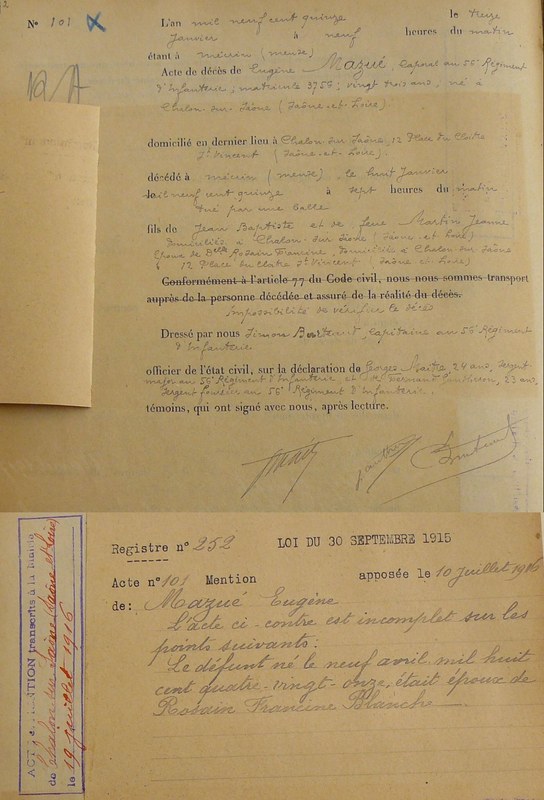 N° 101
L'an mil neuf cent quinze le treize
Janvier à neuf heures du matin
étant à Mécrin (Meuse)
Acte de décès de Eugène Mazué, Caporal au 56e Régiment
d'Infanterie, matricule 3756, vingt trois ans, né à
Chalon-sur-Saône (Saône-et-Loire)
domicilié en dernier lieu à Chalon sur Saône, 12 Place du Cloître
St Vincent (Saône-et-Loire)
décédé à Mécrin (Meuse) le huit Janvier
mil neuf cent quinze à sept heures du matin
tué par une balle
fils de Jean Baptiste et de feue Martin Jeanne
domiciliés à Chalon-sur-Saône (Saône-et-Loire)
Époux de Rosain Francine, domiciliée à Chalon sur Saône
12 Place du Cloître St Vincent (Saône-et-Loire)
Conformément à l'article 77 du Code civil, nous nous sommes transport
auprès de la personne décédée et assuré de la réalité du décès.
Impossibilité de vérifier le décès
Dressé par nous Simon Bertrand, Capitaine au 56e Régiment
d'Infanterie
officier de l'état civil, sur la déclaration de Georges Maitre, 24 ans, Sergent
major au 56e Régiment d'Infanterie et de Germain, 23 ans,
Sergent fourrier au 56e Régiment d'Infanterie.
témoins, qui ont signé avec nous, après lecture.
Registre n° 252 LOI DU 30 SEPTEMBRE 1915
Acte n° 101 Mention apposée le 10 juillet 1916
de: Mazué Eugène
L'acte ci-contre est incomplet sur les
points suivants:
Le défunt né le neuf avril mil huit
cent quatre-vingt-onze, était époux de
Rosain Francine Blanche
MENTION transcrits à la Mairie
de Chalon sur Saône Saône et Loire
le 19 juillet 1916